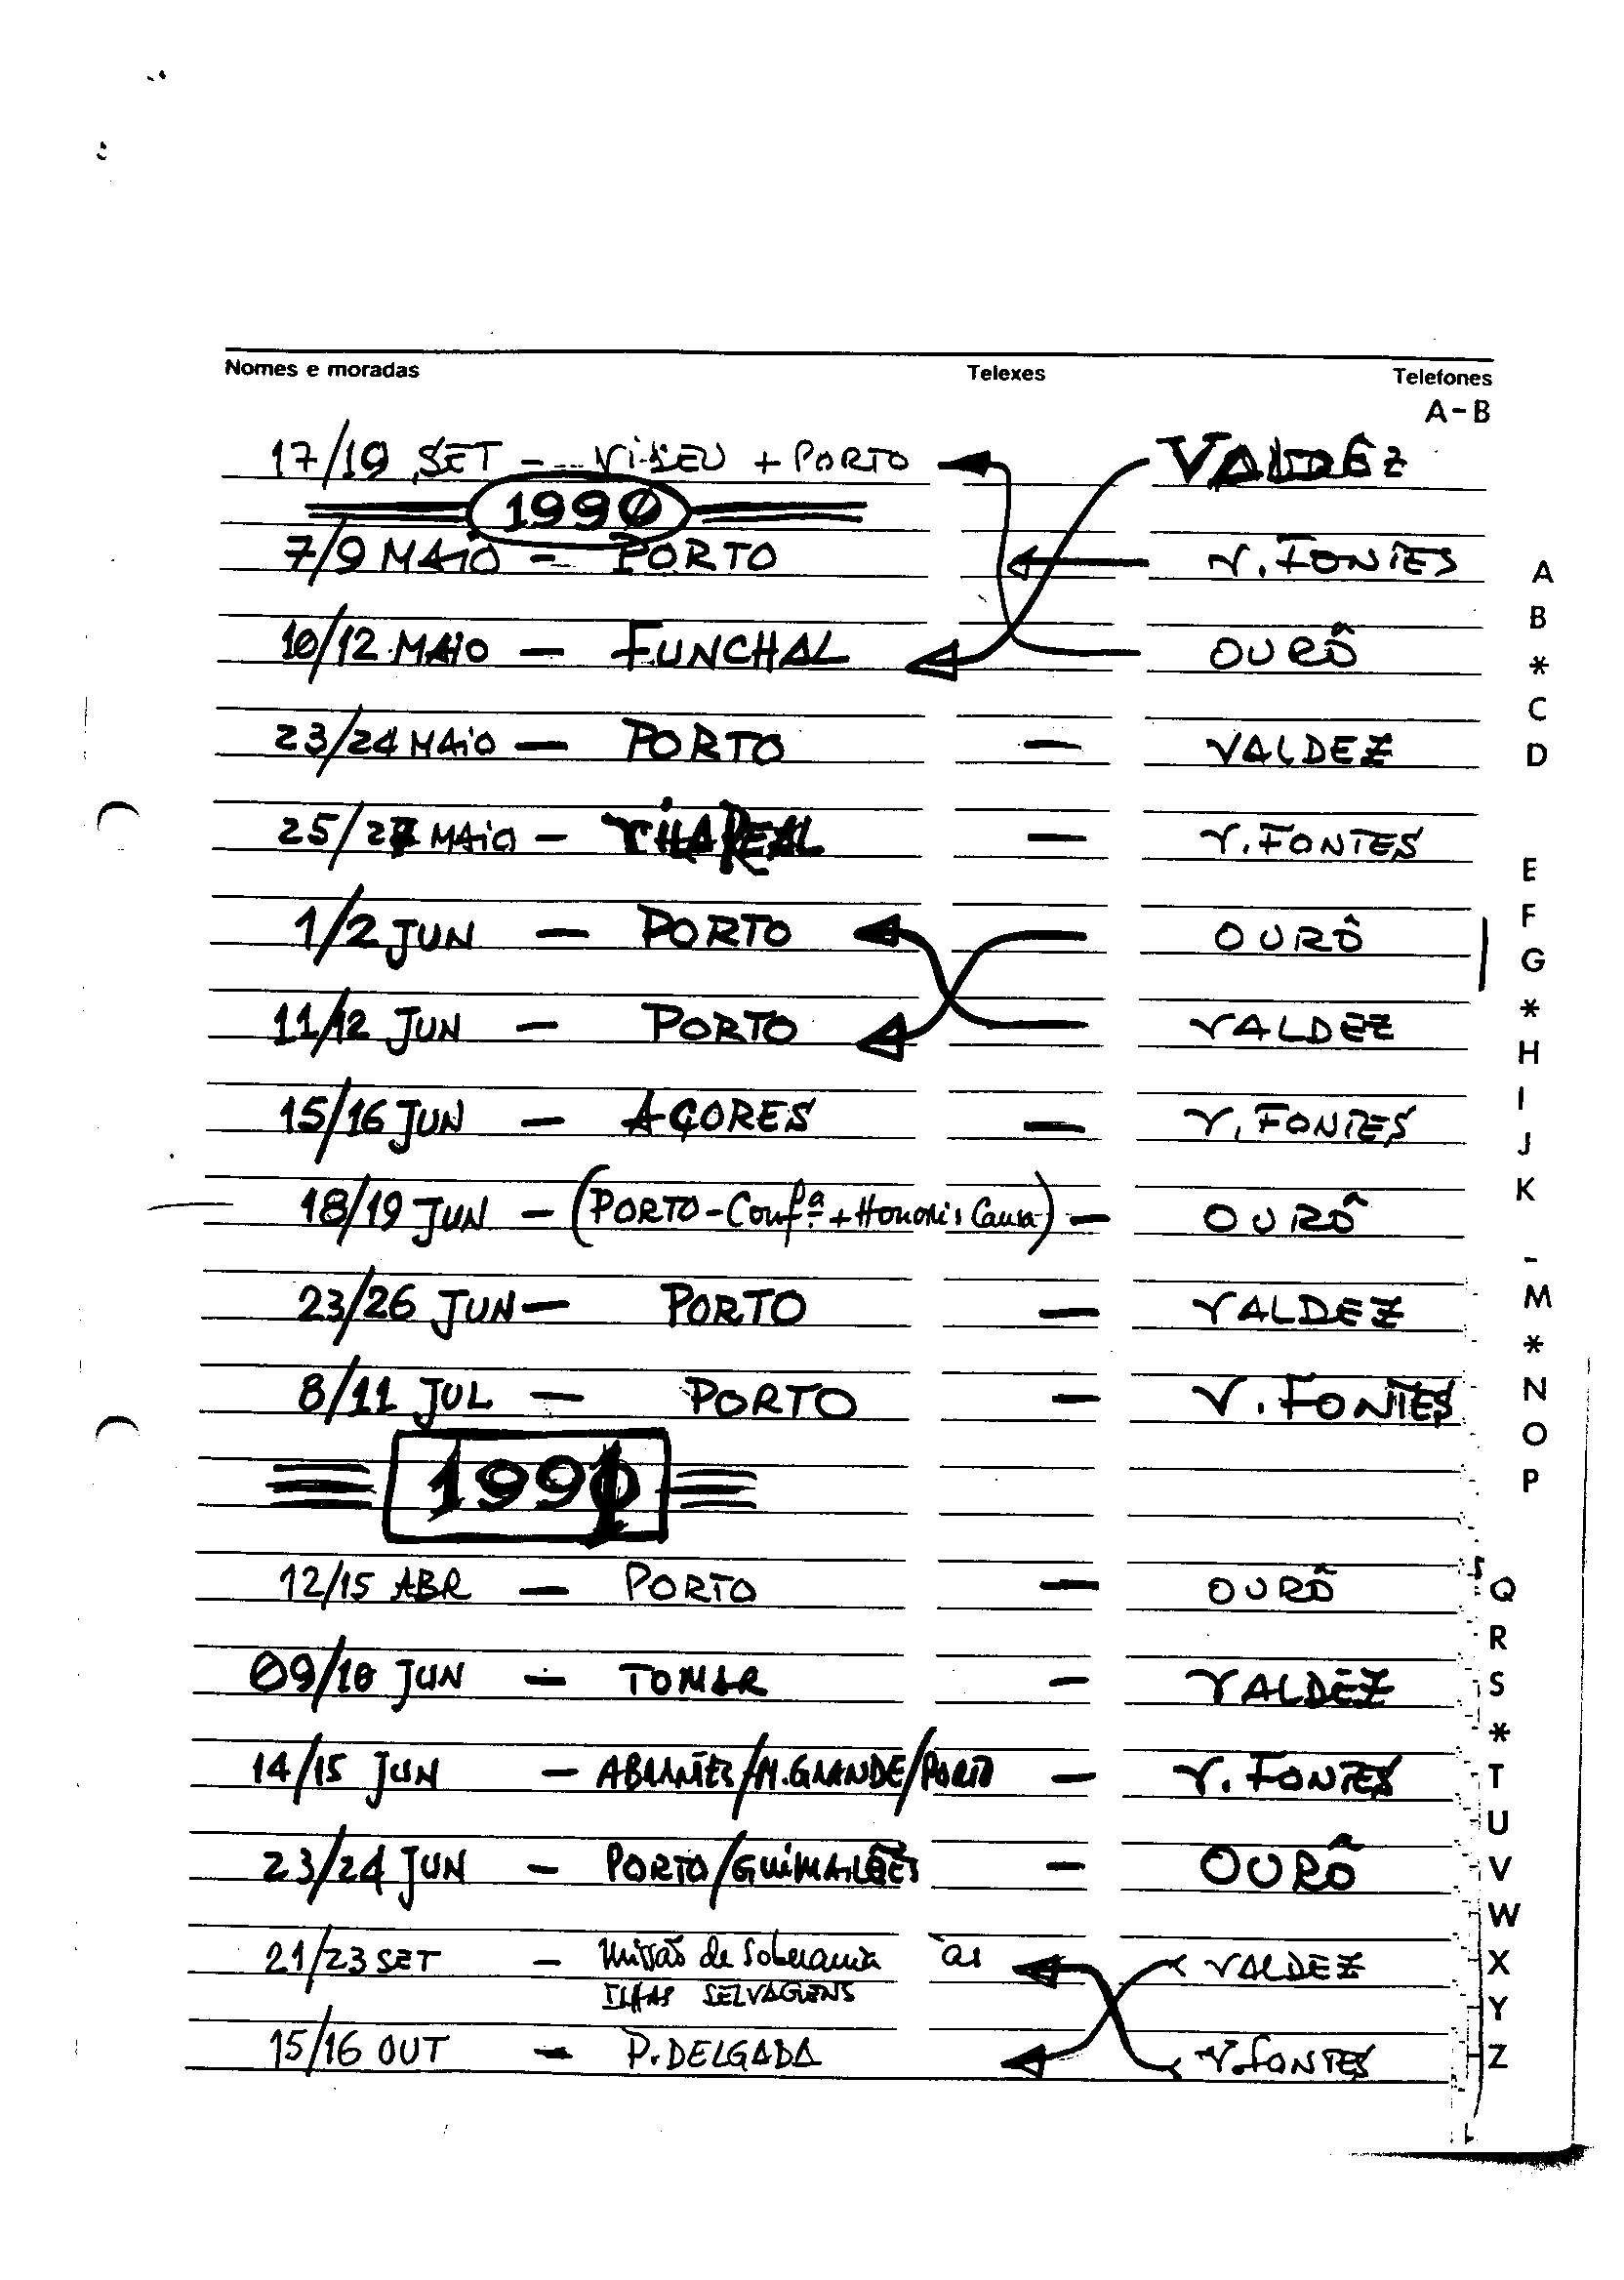 Nomes e moradas Telexes Telefones
A-B
17/19 SET - VISEU + PORTO VALDEZ
1990
7/9 MAIO - PORTO V. FONTES
10/12 MAIO - FUNCHAL OURÔ
23/24 MAIO - PORTO - VALDEZ
25/27 MAIO - VILA REAL - V. FONTES
1/2 JUN - PORTO OURÔ
11/12 JUN - PORTO VALDEZ
15/16 JUN - AÇORES - V. FONTES
18/19 JUN - (PORTO - Confª + Honoris Causa) - OURÔ
23/26 JUN - PORTO - VALDEZ
8/11 JUL - PORTO - V. FONTES
1991
12/15 ABR - PORTO - OURÔ
09/10 JUN - TOMAR - VALDEZ
14/15 JUN - ABRANTES/M.GRANDE/PORTO - V. FONTES
23/24 JUN - PORTO/GUIMARÃES - OURÔ
21/23 SET - Missão de Soberania às VALDEZ
ILHAS SELVAGENS
15/16 OUT - P. DELGADA V. FONTES
A
B
*
C
D
E
F
G
*
H
I
J
K
-
M
*
N
O
P
Q
R
S
*
T
U
V
W
X
Y
Z